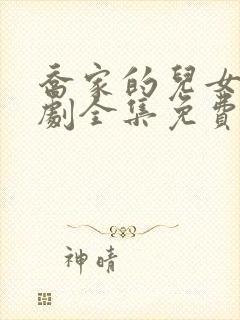 喬家的兒女
劇全集免費
神晴